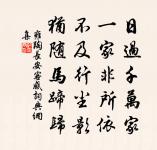 日過千萬家
一家非所依
不及行塵影
猶隨馬蹄歸
雍陶長安客感詞典網
喜